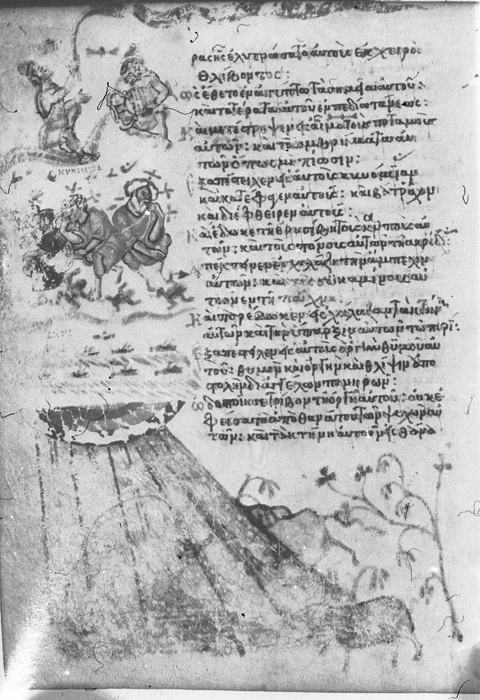 ρας ἧς ἐλυτρώσατο αὐτοὺς ἐκ χειρὸς
θλίβοντος:
ὡς ἔθετο ἐν αἰγύπτω τὰ σημεῖα αὐτοῦ:
καὶ τὰ τέρατα αὐτοῦ ἐν πεδίω τάνεως:
Καὶ μετέστρεψεν εἰς αἷμα τοὺς ποταμοὺς
αὐτῶν: καὶ τὰ ὀμβρήματα αὐ
τῶν ὅπως μὴ πίωσιν:
Ἐξαπέστειλεν εἰς αὐτοὺς κυνόμυιαν
καὶ κατέφαγεν αὐτούς: καὶ βάτραχον
καὶ διέφθειρεν αὐτούς:
Καὶ ἔδωκεν τῆ ἐρυσίβη τοὺς καρποὺς αὐ
τῶν: καὶ τοὺς πόνους αὐτῶν τῆ ἀκρίδι:
Ἀπέκτεινεν ἐν χαλάζη τὴν ἄμπελον
αὐτῶν: καὶ τὰς συκαμίνους αὐ
τῶν ἐν τῆ πάχνη
Καὶ παρέδωκεν εἰς χάλαζαν τὰ κτήνη
αὐτῶν καὶ τὴν ὕπαρξιν αὐτῶν τῶ πυρί:
Ἐξαπέστειλεν εἰς αὐτοὺς ὀργὴν θυμοῦ αὐ
τοῦ: θυμὸν καὶ ὀργὴν καὶ θλίψιν ἀπο
στολὴν δι ἀγγέλων πονηρῶν:
ὡδοποίησεν τρίβον τῆ ὀργῆ αὐτοῦ: οὐκ ἐ
φείσατο ἀπὸ θανάτου τῶν ψυχῶν αὐ
τῶν: καὶ τὰ κτήνη αὐτῶν
ΚΥΝΟΜΥΙΑ